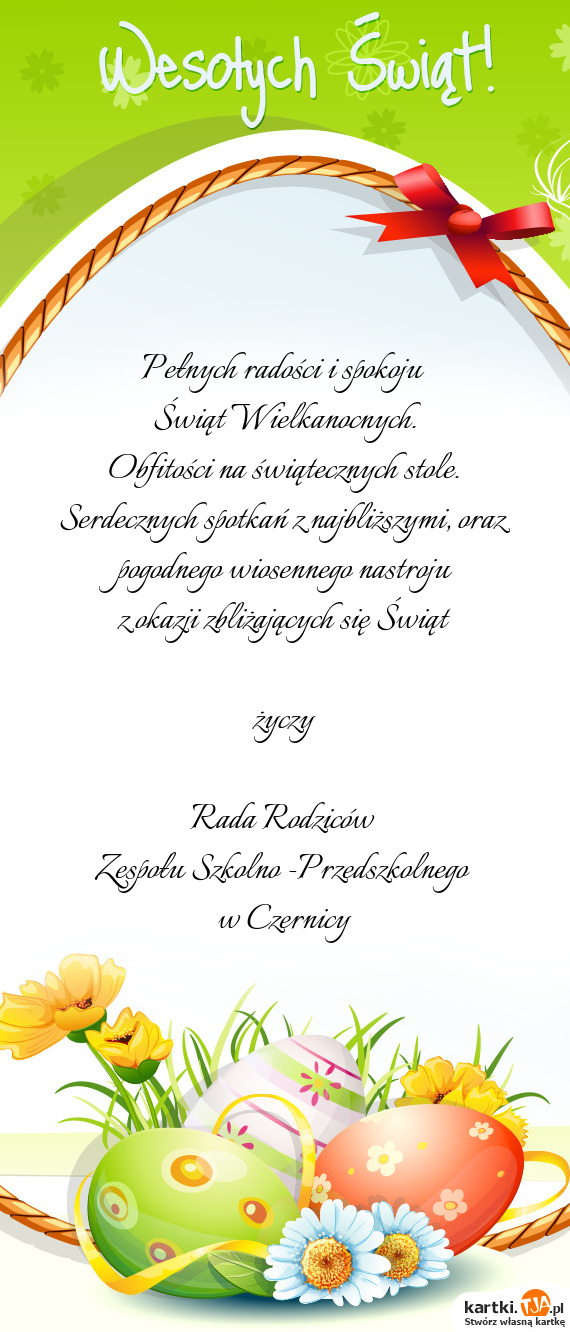 Wesołych Świąt!
Pełnych radości i spokoju
Świąt Wielkanocnych.
Obfitości na świątecznych stole.
Serdecznych spotkań z najbliższymi, oraz
pogodnego wiosennego nastroju
z okazji zbliżających się Świąt
życzy
Rada Rodziców
Zespołu Szkolno -Przedszkolnego
w Czernicy
kartki.TJA.pl
Stwórz własną kartkę